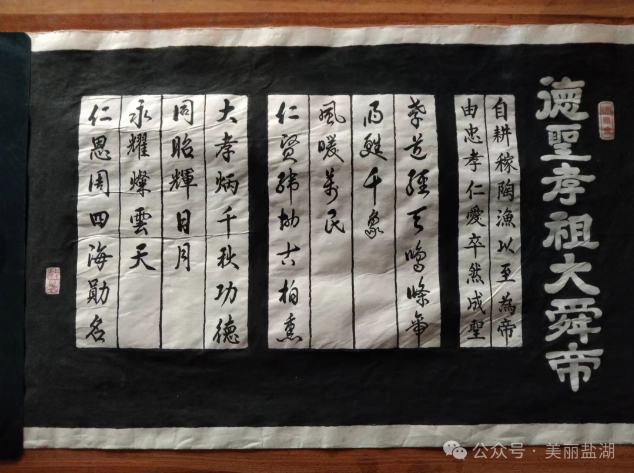 德聖孝祖大舜帝
自耕稼陶漁以至為帝
由忠孝仁愛卒然成聖
孝道經天鳴條
雨甦千象
風暖萬民
仁賢緯地古柏熏
大孝炳千秋功德
同昭輝日月
永耀燦雲天
仁恩周四海勛名
公众号·美丽盐湖